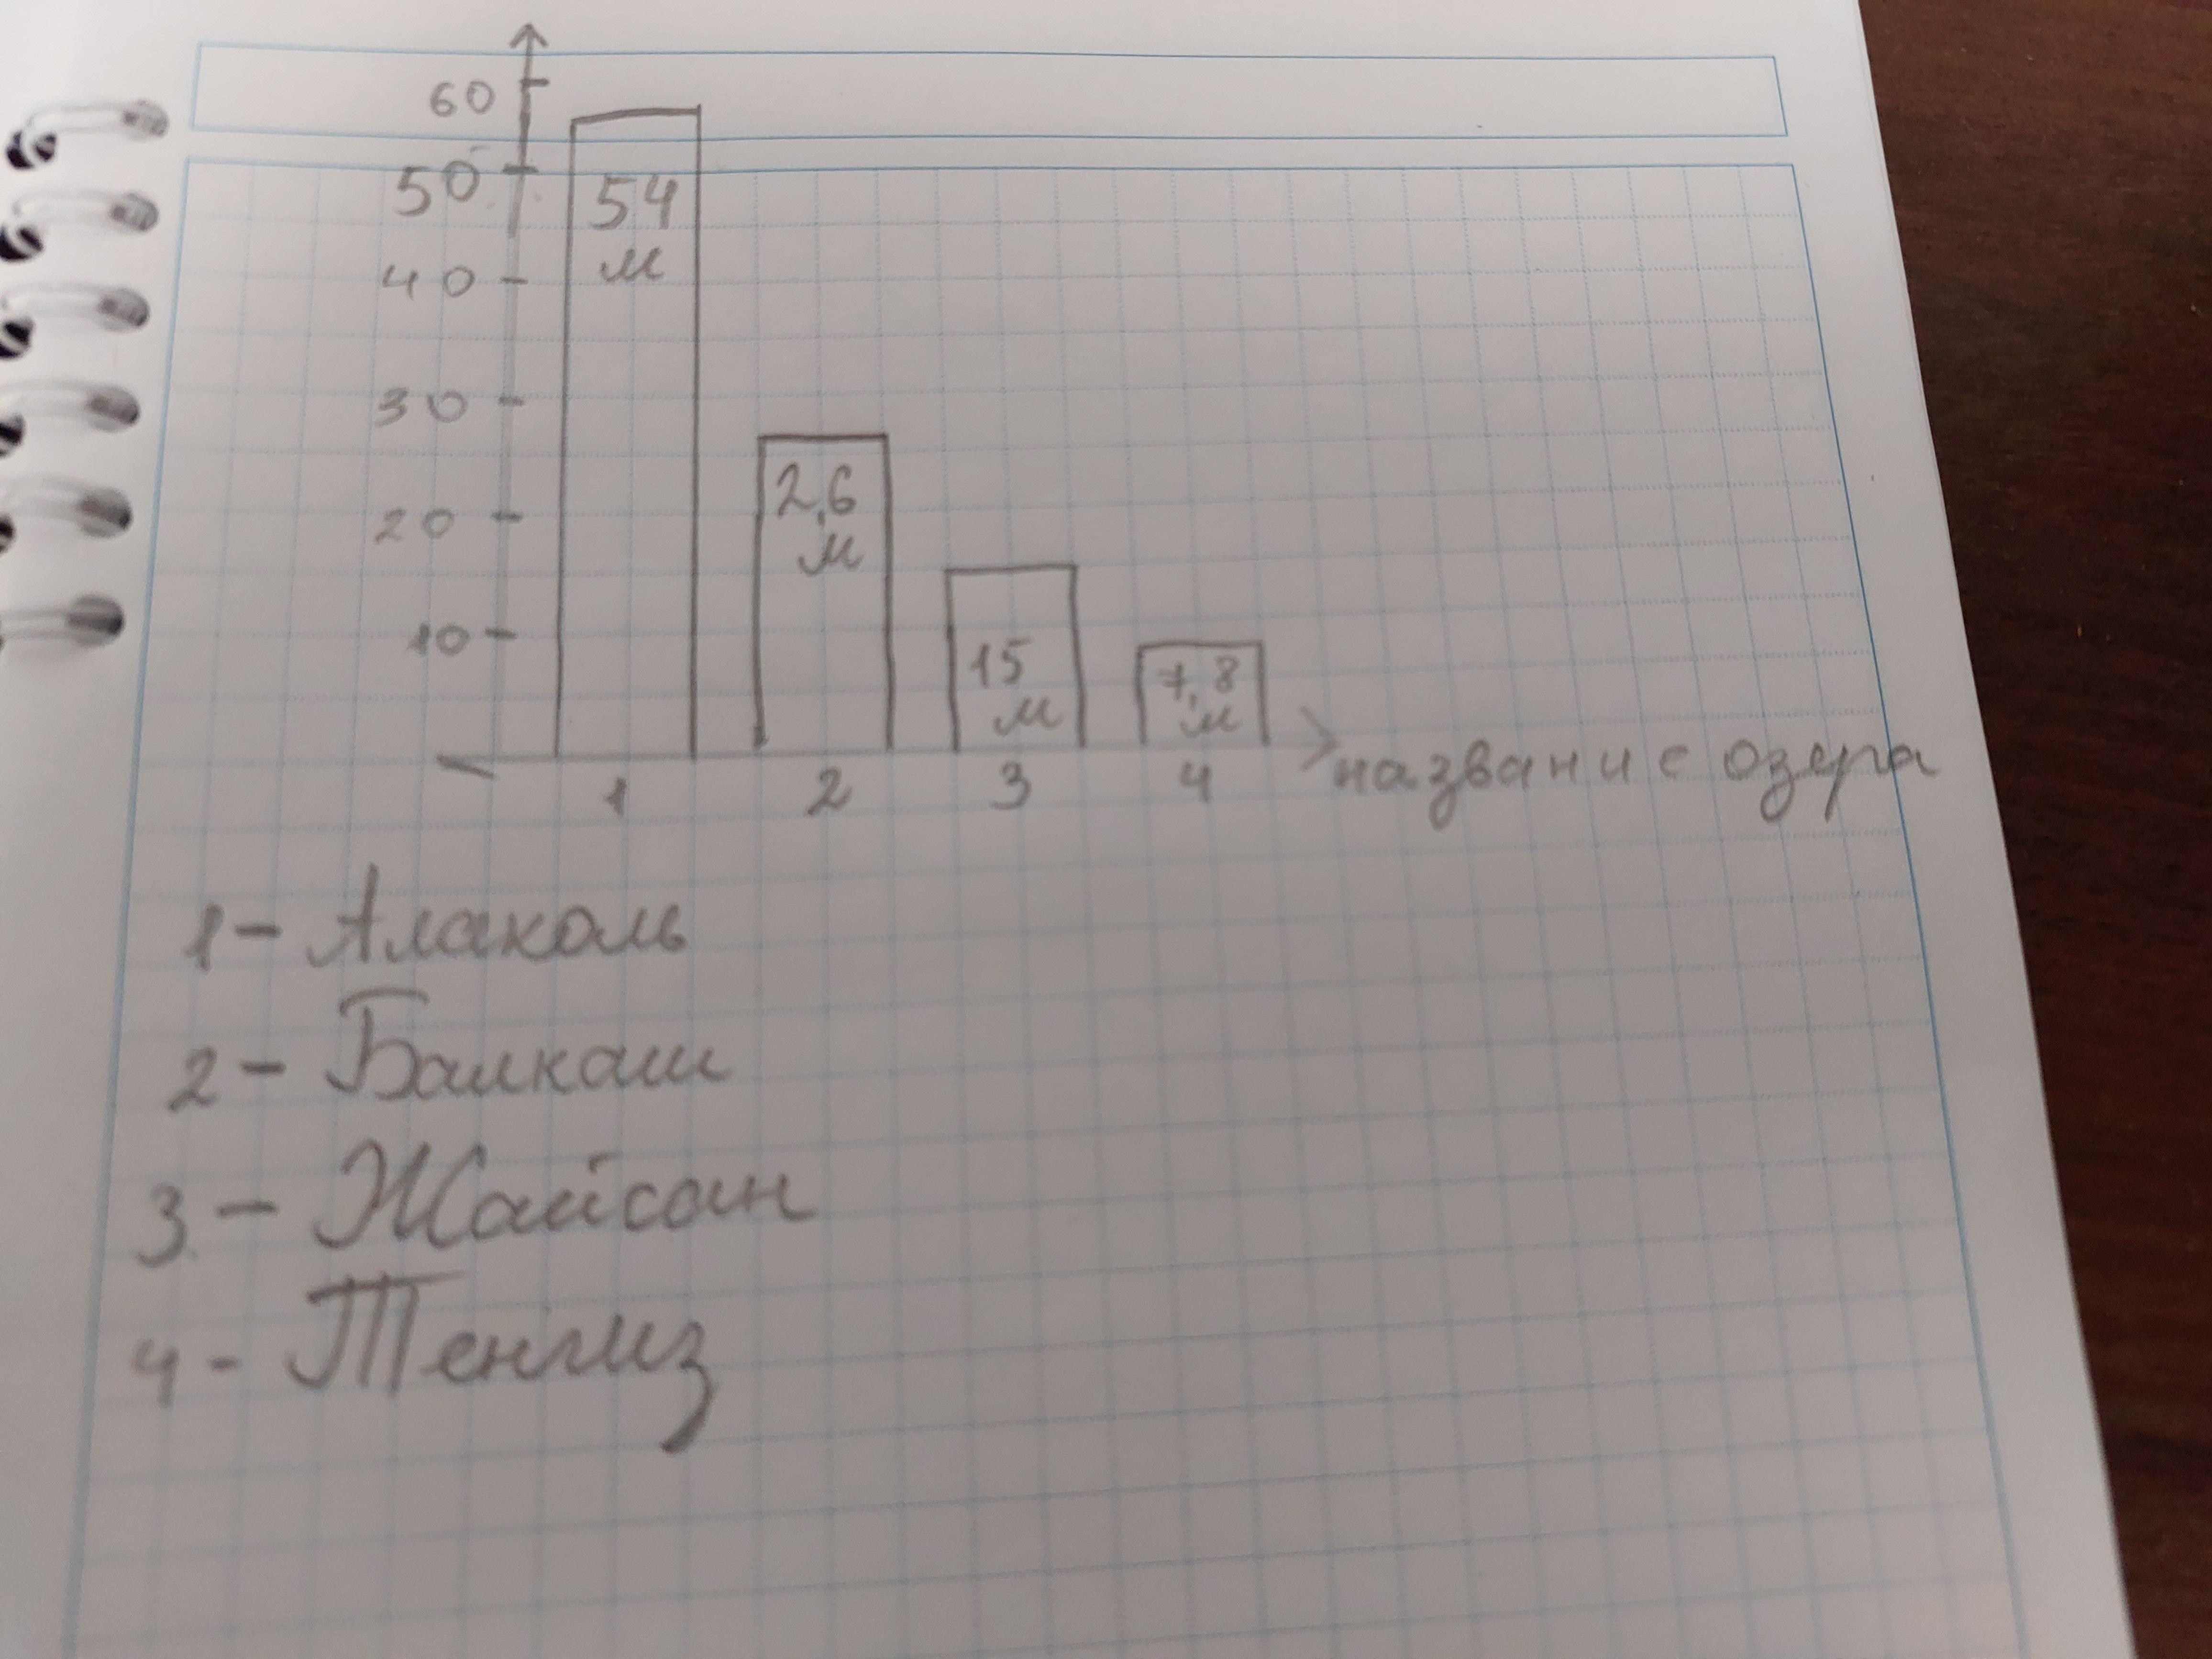 60
50
40
30
20
10
54
м
2,6
м
15
м
7,8
м
1 2 3 4 название озера
1 - Алаколь
2 - Балкаш
3 - Жайсан
4 - Тенгиз